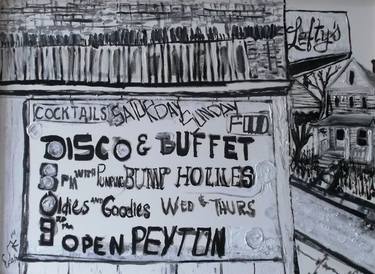 Lefty's
COCKTAILS SATURDAY SUNDAY FOOD
DISCO & BUFFET
8 PM WITH PUMPING BUMP HOLMES
OLDIES AND GOODIES WED & THURS
9 PM
OPEN PEYTON